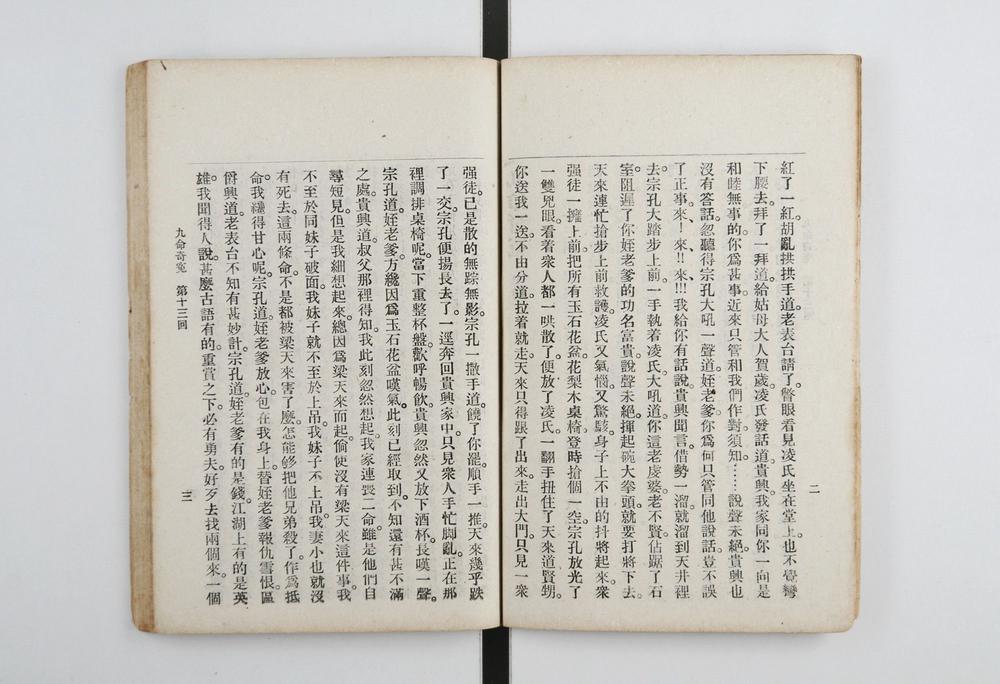 紅了一紅胡亂拱拱手道老表台請了瞥眼看見凌氏坐在堂上也不覺彎
下腰去拜了一拜道給姑母大人賀歲凌氏發話道貴興我家同你一向是
和睦無事的你爲甚事近來只管和我們作對須知……說聲未絕貴興也
沒有答話忽聽得宗孔大吼一聲道姪老爹你爲何只管同他說話豈不誤
了正事來!來!!來!!!我給你有話說貴興聞言借勢一溜就溜到天井裡
去宗孔大踏步上前一手執着凌氏大吼道你這老虔婆老不賢佔踞了石
室阻遲了你姪老爹的功名富貴說聲未絕揮起碗大拳頭就要打將下去
天來連忙搶步上前救護凌氏又氣惱又驚駭身子上不由的抖將起來衆
强徒一擁上前把所有玉石花盆花梨木桌椅登時搶個一空宗孔放光了
一雙兇眼看着衆人都一哄散了便放了凌氏一翻手扭住了天來道賢甥
你送我一送不由分道拉着就走天來只得跟了出來走出大門只見一衆
二
强徒已是散的無踪無影宗孔一撒手道饒了你罷順手一推天來幾乎跌
了一交宗孔便揚長去了一逕奔回貴興家中只見衆人手忙脚亂正在那
裡調排桌椅呢當下重整杯盤歡呼暢飲貴興忽然又放下酒杯長嘆一聲
宗孔道姪老爹方纔因爲玉石花盆嘆氣此刻已經取到不知還有甚不滿
之處貴興道叔父那裡得知我此刻忽然想起我家連喪二命雖是他們自
尋短見但是我細想起來總因爲梁天來而起倘使沒有梁天來這件事我
不至於同妹子破面我妹子就不至於上吊我妹子不上吊我妻小也就沒
有死去這兩條命不是都被梁天來害了麼怎能够把他兄弟殺了作爲抵
命我纔得甘心呢宗孔道姪老爹放心包在我身上替姪老爹報仇雪恨區
爵興道老表台不知有甚妙計宗孔道姪老爹有的是錢江湖上有的是英
雄我聞得人說甚麼古語有的重賞之下必有勇夫好歹去找兩個來一個
九命奇寃　第十三回
三